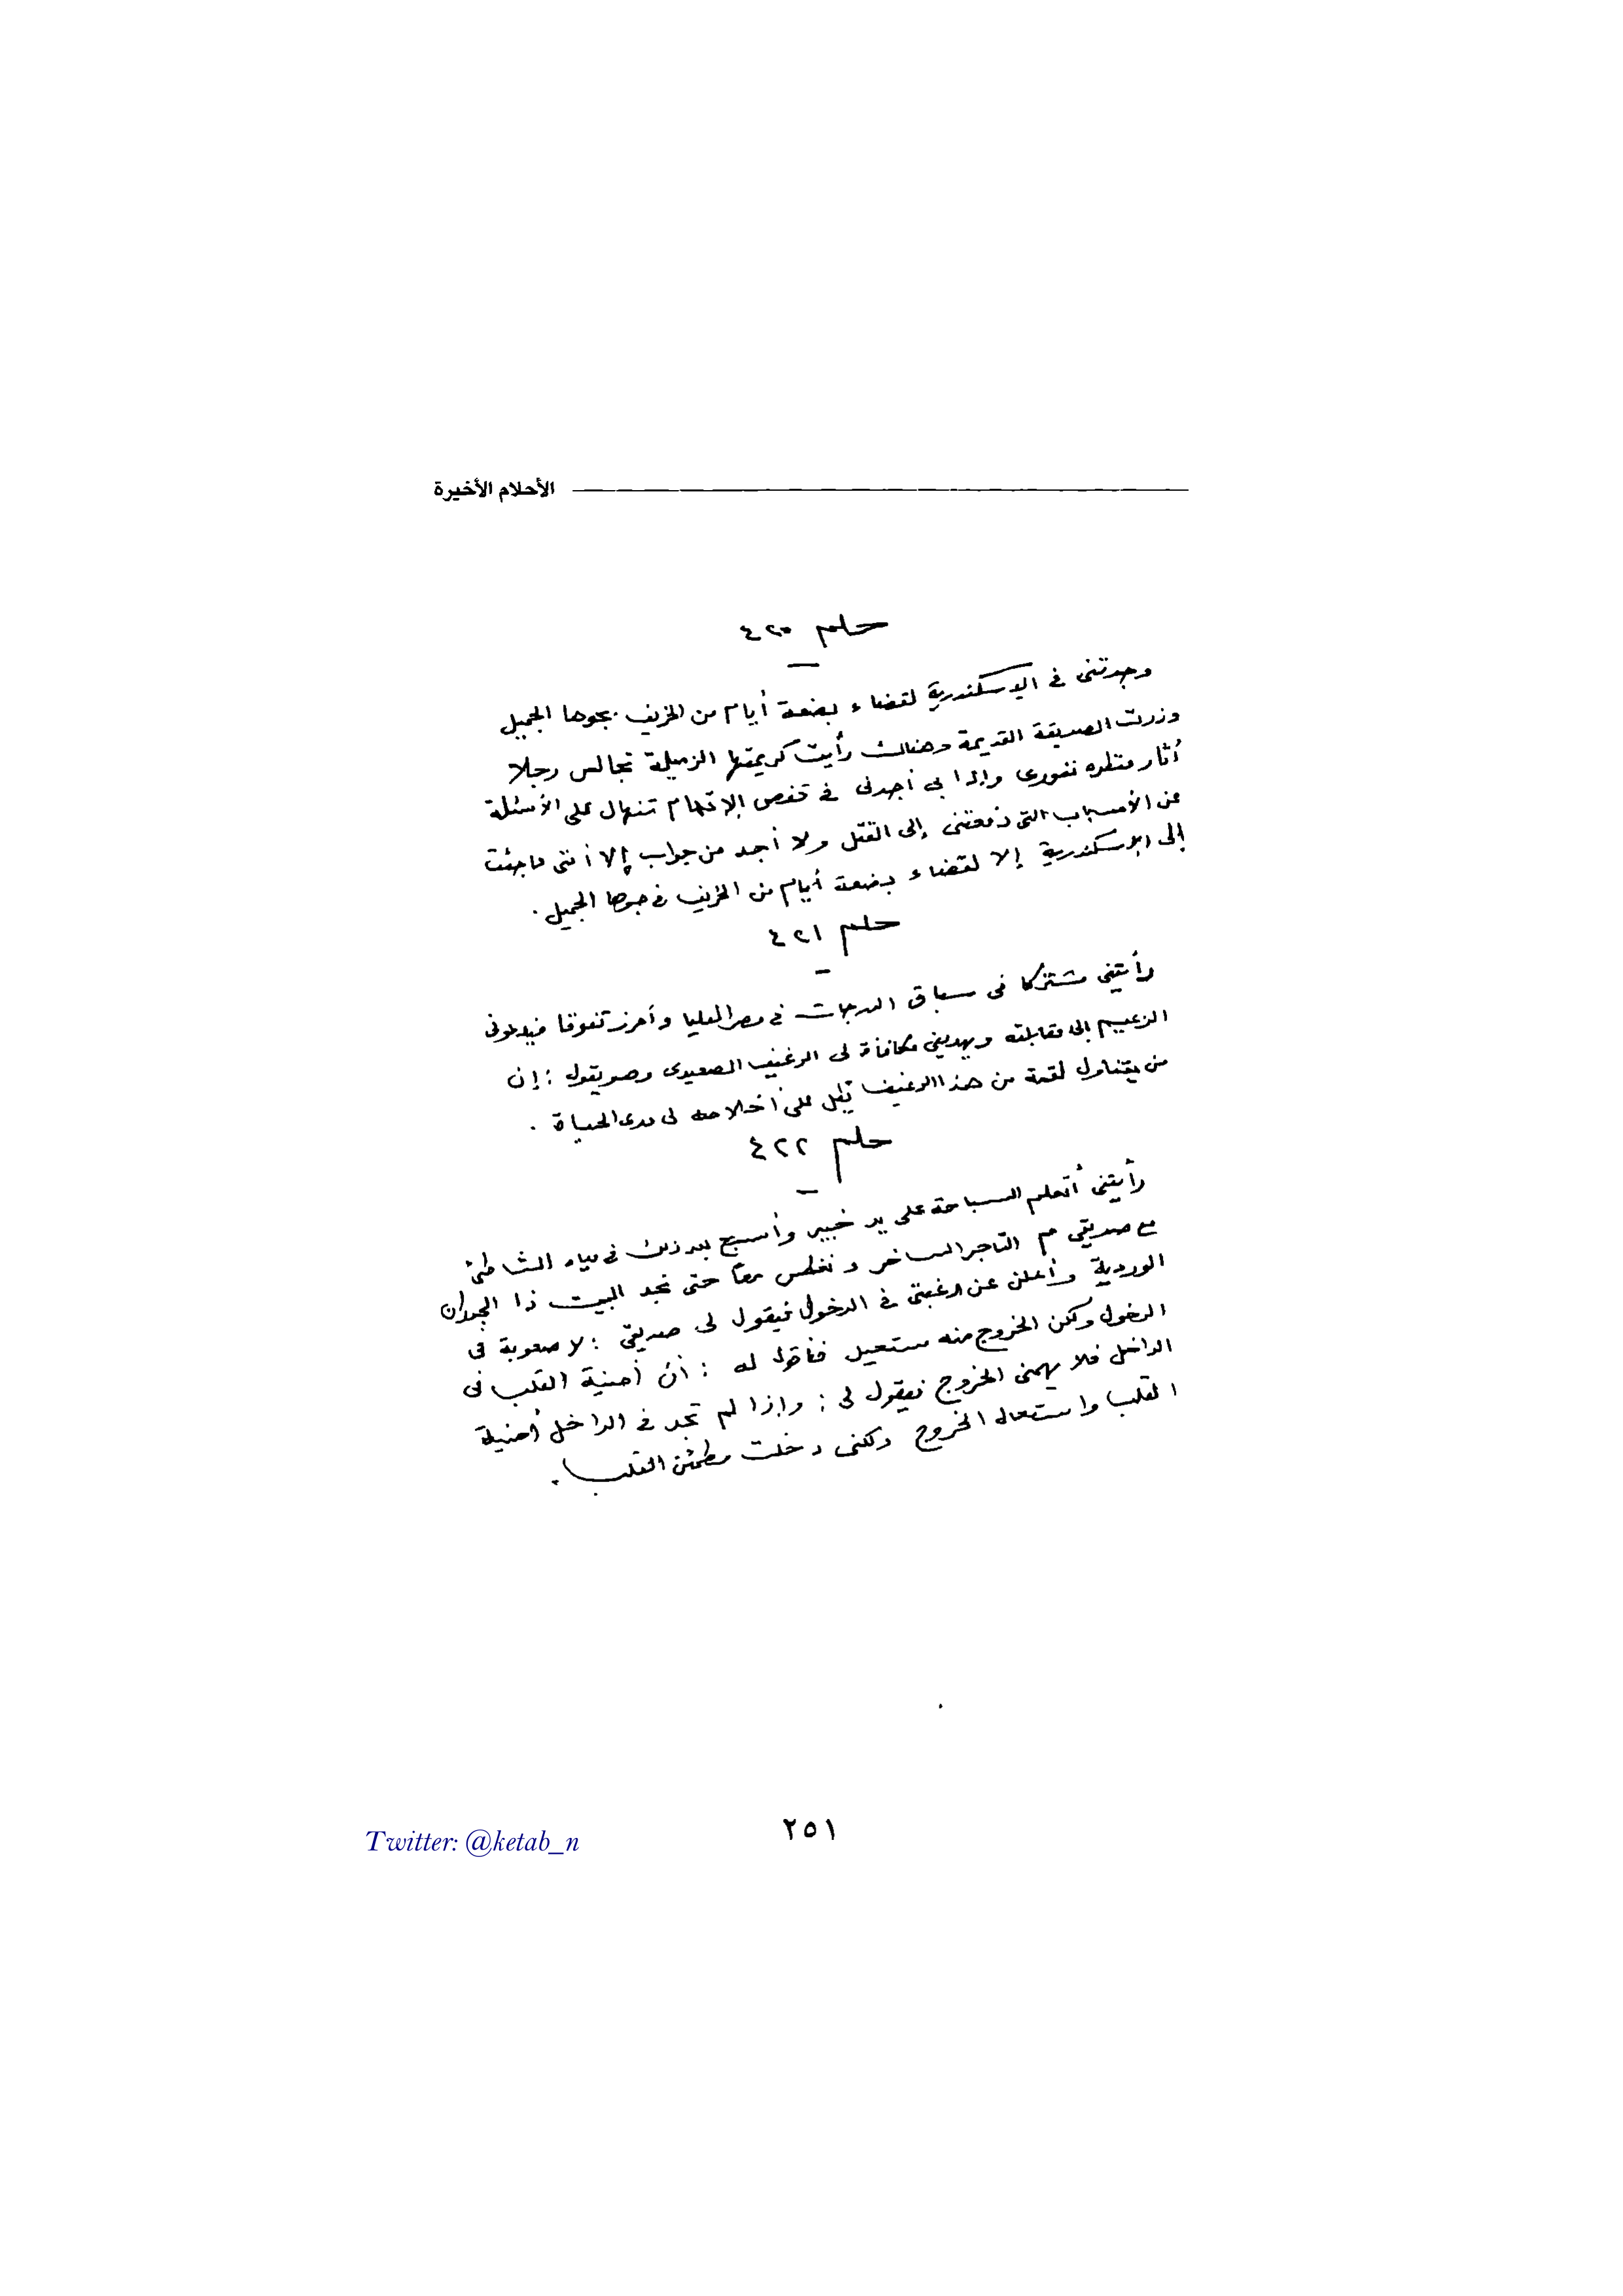 الأحلام الأخيرة
حلم ٤٢٠
وجدتنى فى الإسكندرية لقضاء بضعة أيام من الخريف بجوها الجميل
وزرت الصديقة القديمة وهناك رأيت كريمتها الزميلة تجالس رجلا
أثار منظره نفورى وإذا بى أجدنى فى قفص الإتهام تنهال على الأسئلة
عن الأسباب التى دفعتنى إلى القتل ولا أجد من جواب إلا أننى ماجئت
إلى الإسكندرية إلا لقضاء بضعة أيام من الخريف فى جوها الجميل .
حلم ٤٢١
رأيتنى مشتركا فى سباق الدرجات فى مصر العليا وأحرز تفوقا فيدعونى
الزعيم إلى مقابلته ويهدينى مكافأة لى الرغيف الصعيدى وهو يقول : إن
من يتناول لقمة من هذا الرغيف على أخلاصه لى مدى الحياة .
حلم ٤٢٢
رأيتنى أتعلم السباحة على يد خبير وأسبح بعد ذلك فى مياه الشاطئ
مع صديقى م التاجر الساخر ونغطس معاً حتى نجد البيت ذا الجدران
الوردية وأعلن عن رغبتى فى الدخول فيقول لى صديقى : لا صعوبة فى
الدخول ولكن الخروج منه مستحيل فأقول له : أن أمنية القلب فى
الداخل فلا يهمنى الخروج فيقول لى : وإذا لم تجد فى الداخل أمنية
القلب واستحال الخروج ولكنى دخلت مطمئن القلب .
٢٥١
Twitter: @ketab_n